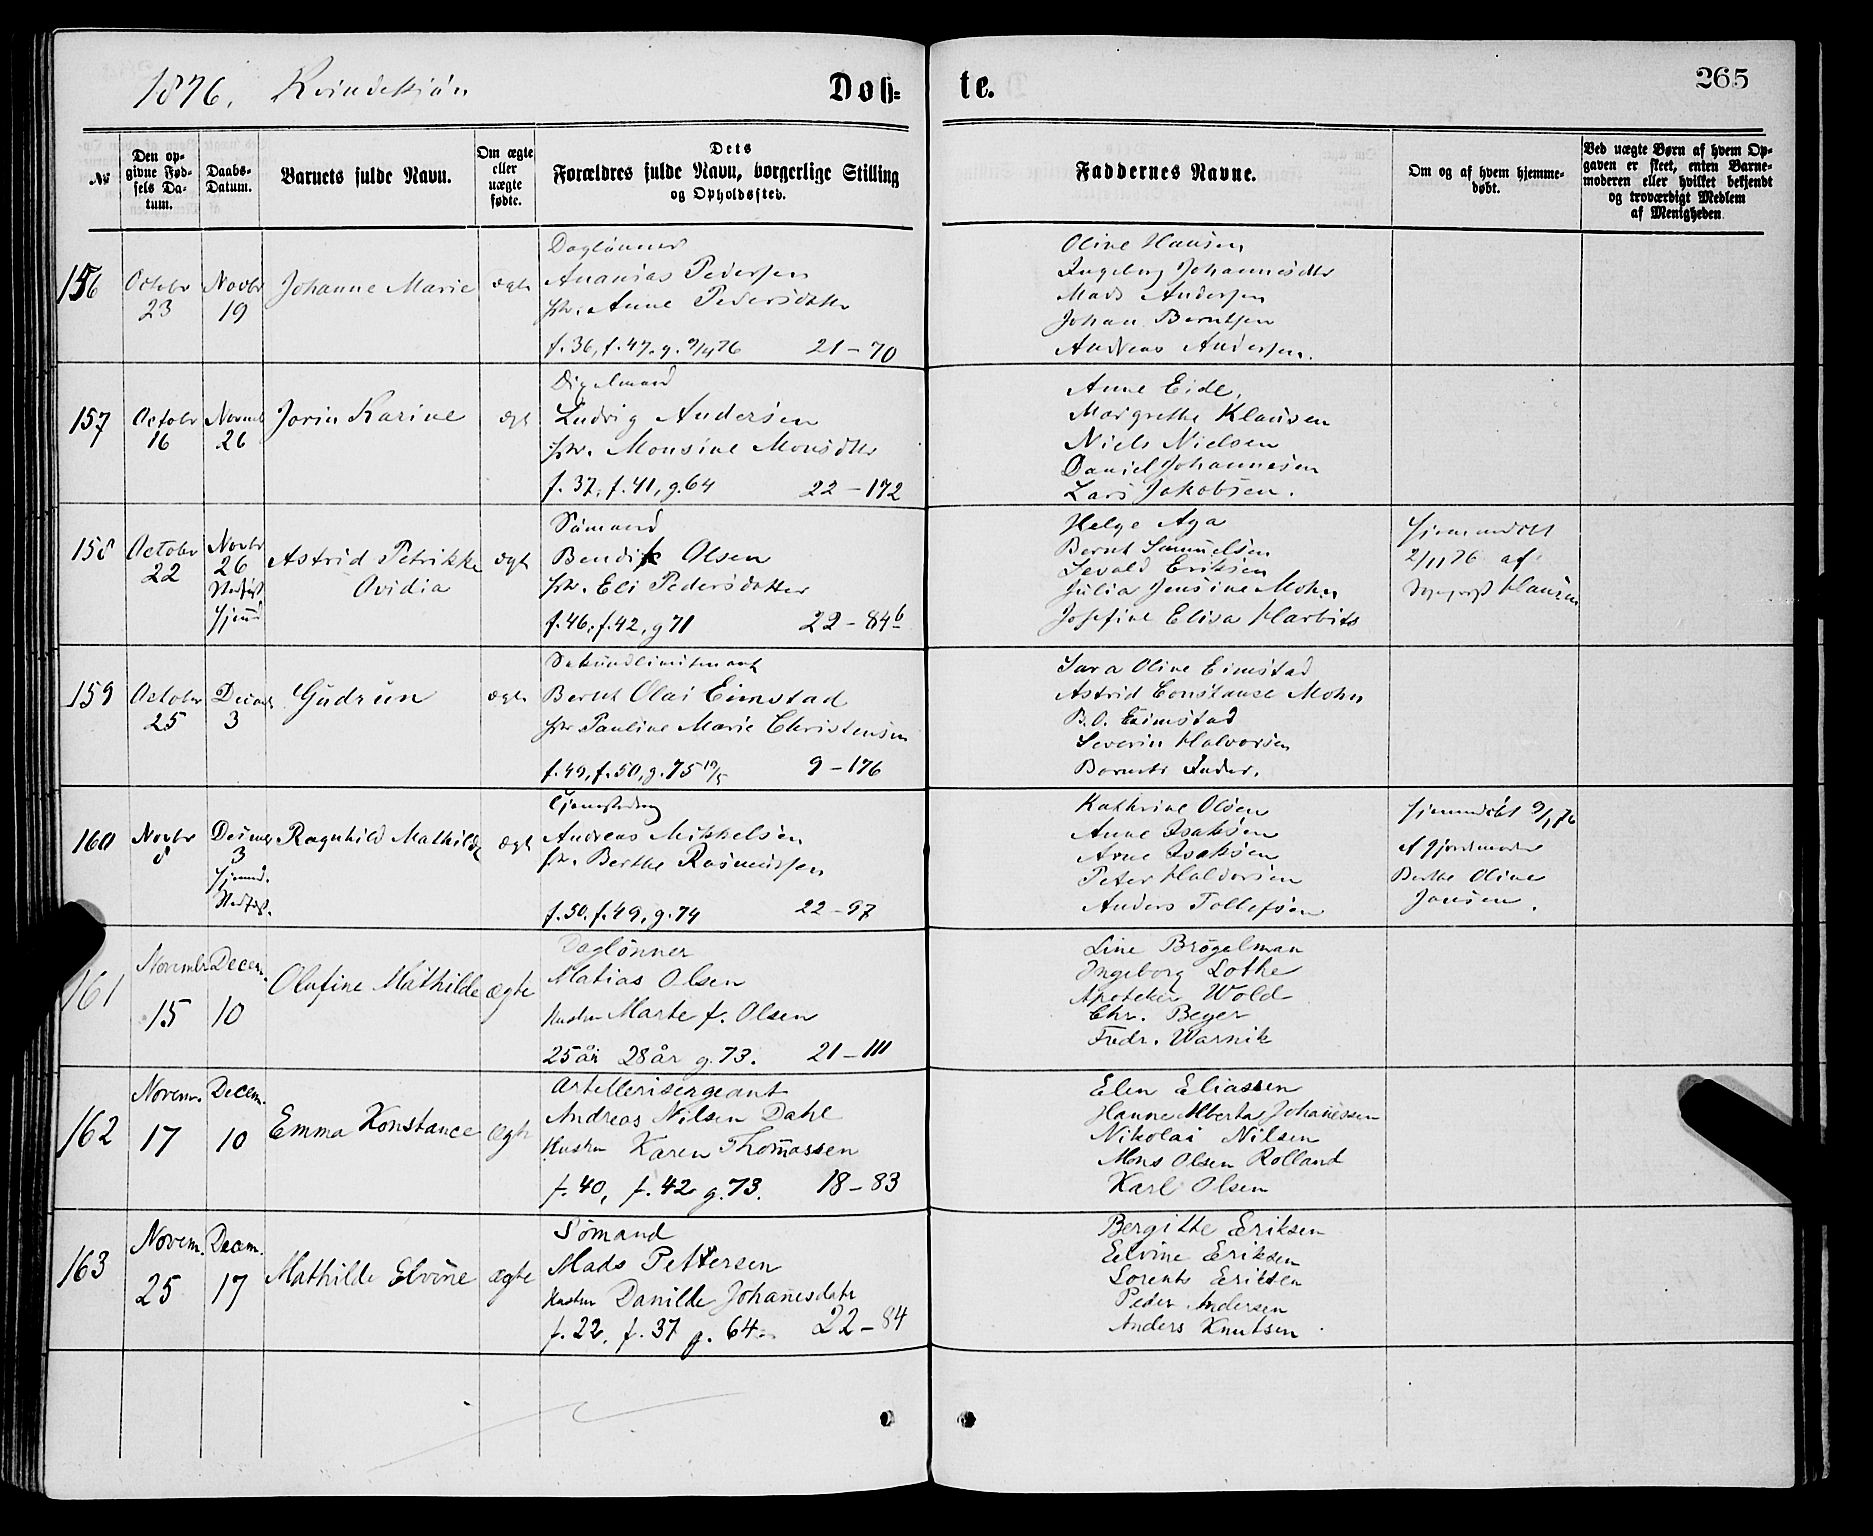 1876. Kvindekjøn
Døb=
te.
265
No
Den op-
givne Fød-
sels Da-
tum.
Daabs-
Datum.
Barnets fulde Navn.
Om ægte
eller
uægte
fødte.
Dets
Forældres fulde Navn, borgerlige Stilling
og Opholdssted.
Faddernes Navne.
Om og af hvem hjemme-
døbt.
Ved uægte Børn af hvem Op-
gaven er skeet, enten Barne-
moderen eller hvilket bekjendt
og troværdigt Medlem
af Menigheden.
156
Octobr
23
Novbr
19
Johanne Marie
ægte
Daglønner
Ananias Pedersen
Anne Pedersdatter
f. 36, f. 47. g. 9/4 76 21-70
Oline Hansen
Ingeborg Johannesdtr
Mads Andersen
Johan Berntsen
Andreas Andersen.
157
Octobr
16
Novmb
26
Jorin Karine
ægt
Ludvig Andersen
Monsine Monsdtr
f. 37. f. 41, g. 64 22-172
Anne Eide,
Margrethe Klausen
Niels Nielsen
Daniel Johannesen
Lars Jakobsen.
158
Octobr
22
Novbr
26
Astrid Petrikke
Ovidia
ægt
Sømand
Olsen
Eli Pedersdatter
f. 46. f. 42, g 71 22-84b
Helge Aga
Bernt Samuelsen
Sevald Eriksen
Julia Jensine Mohn
Josefine Elisa Harbits
hjemmedøbt
2/11 76 af
Hansen
159
October
25
Decmb
3
Gudrun
ægte
Sekundlieutenant
Bernt Olai Eimstad
Pauline Marie Christensen
f. 49, f. 50, g. 75 19/5 9-176
Sara Oline Eimstad
Astrid Constanse Mohn
B. O. Eimstad
Severin Halvorsen
Barnets Fader.
160
Novbr
8
3
Ragnhild Mathilde
ægt
Andreas Mikkelsen
Berthe Rasmussen
f. 50. f. 49, g. 74 22-97
Kathrine Olsen
Anne Isaksen
Arne Isaksen
Peter Haldorsen
Anders Tollefsen
hjemmedøbt
af Gjordmoder
Berthe Oline
Jansen.
161
Novembr
15
Decem.
10
Olafine Mathilde
ægte
Daglønner
Matias Olsen
Hustru Marte f. Olsen
25 år 28 år g. 73. 21-111
Line Brøgelman
Ingeborg Lothe
Apoteker Wold
Chr. Beyer
Fredr. Warnik
162
Novem.
17
Decem.
10
Emma Konstance
ægte
Artellerisergeant
Andreas Nilsen Dahl
Hustru Karen Thomassen
f. 40, f. 42 g. 73. 18-83
Elen Eliassen
Hanne Alberta Johanessen
Nikolai Nilsen
Mons Olsen Rolland
Karl Olsen
163
Novem.
25
Decem.
17
Mathilde Elvine
ægte
Sømand
Mads Pettersen
Hustru Danilde Johanesdatr
f. 22. f. 37 g. 64. 22-84
Bergitte Eriksen
Elvine Eriksen
Lorents Eriksen
Peder Andersen
Anders Knutsen